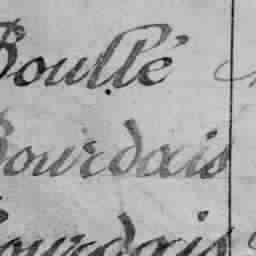 Boullé
Bourdais
Bourdais